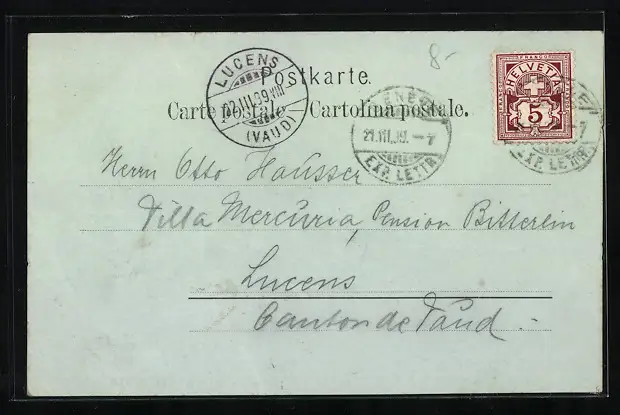 8-
Postkarte.
Carte postale. Cartolina postale.
LUCENS
22.III.99.VIII
(VAUD)
21.III.99.–7
EXP. LETTR.
FRANCO
HELVETIA
5
7
EXP. LETTR.
Herrn Otto Hausser
Villa Mercuria, Pension Bitterlin
Lucens
Canton de Vaud.